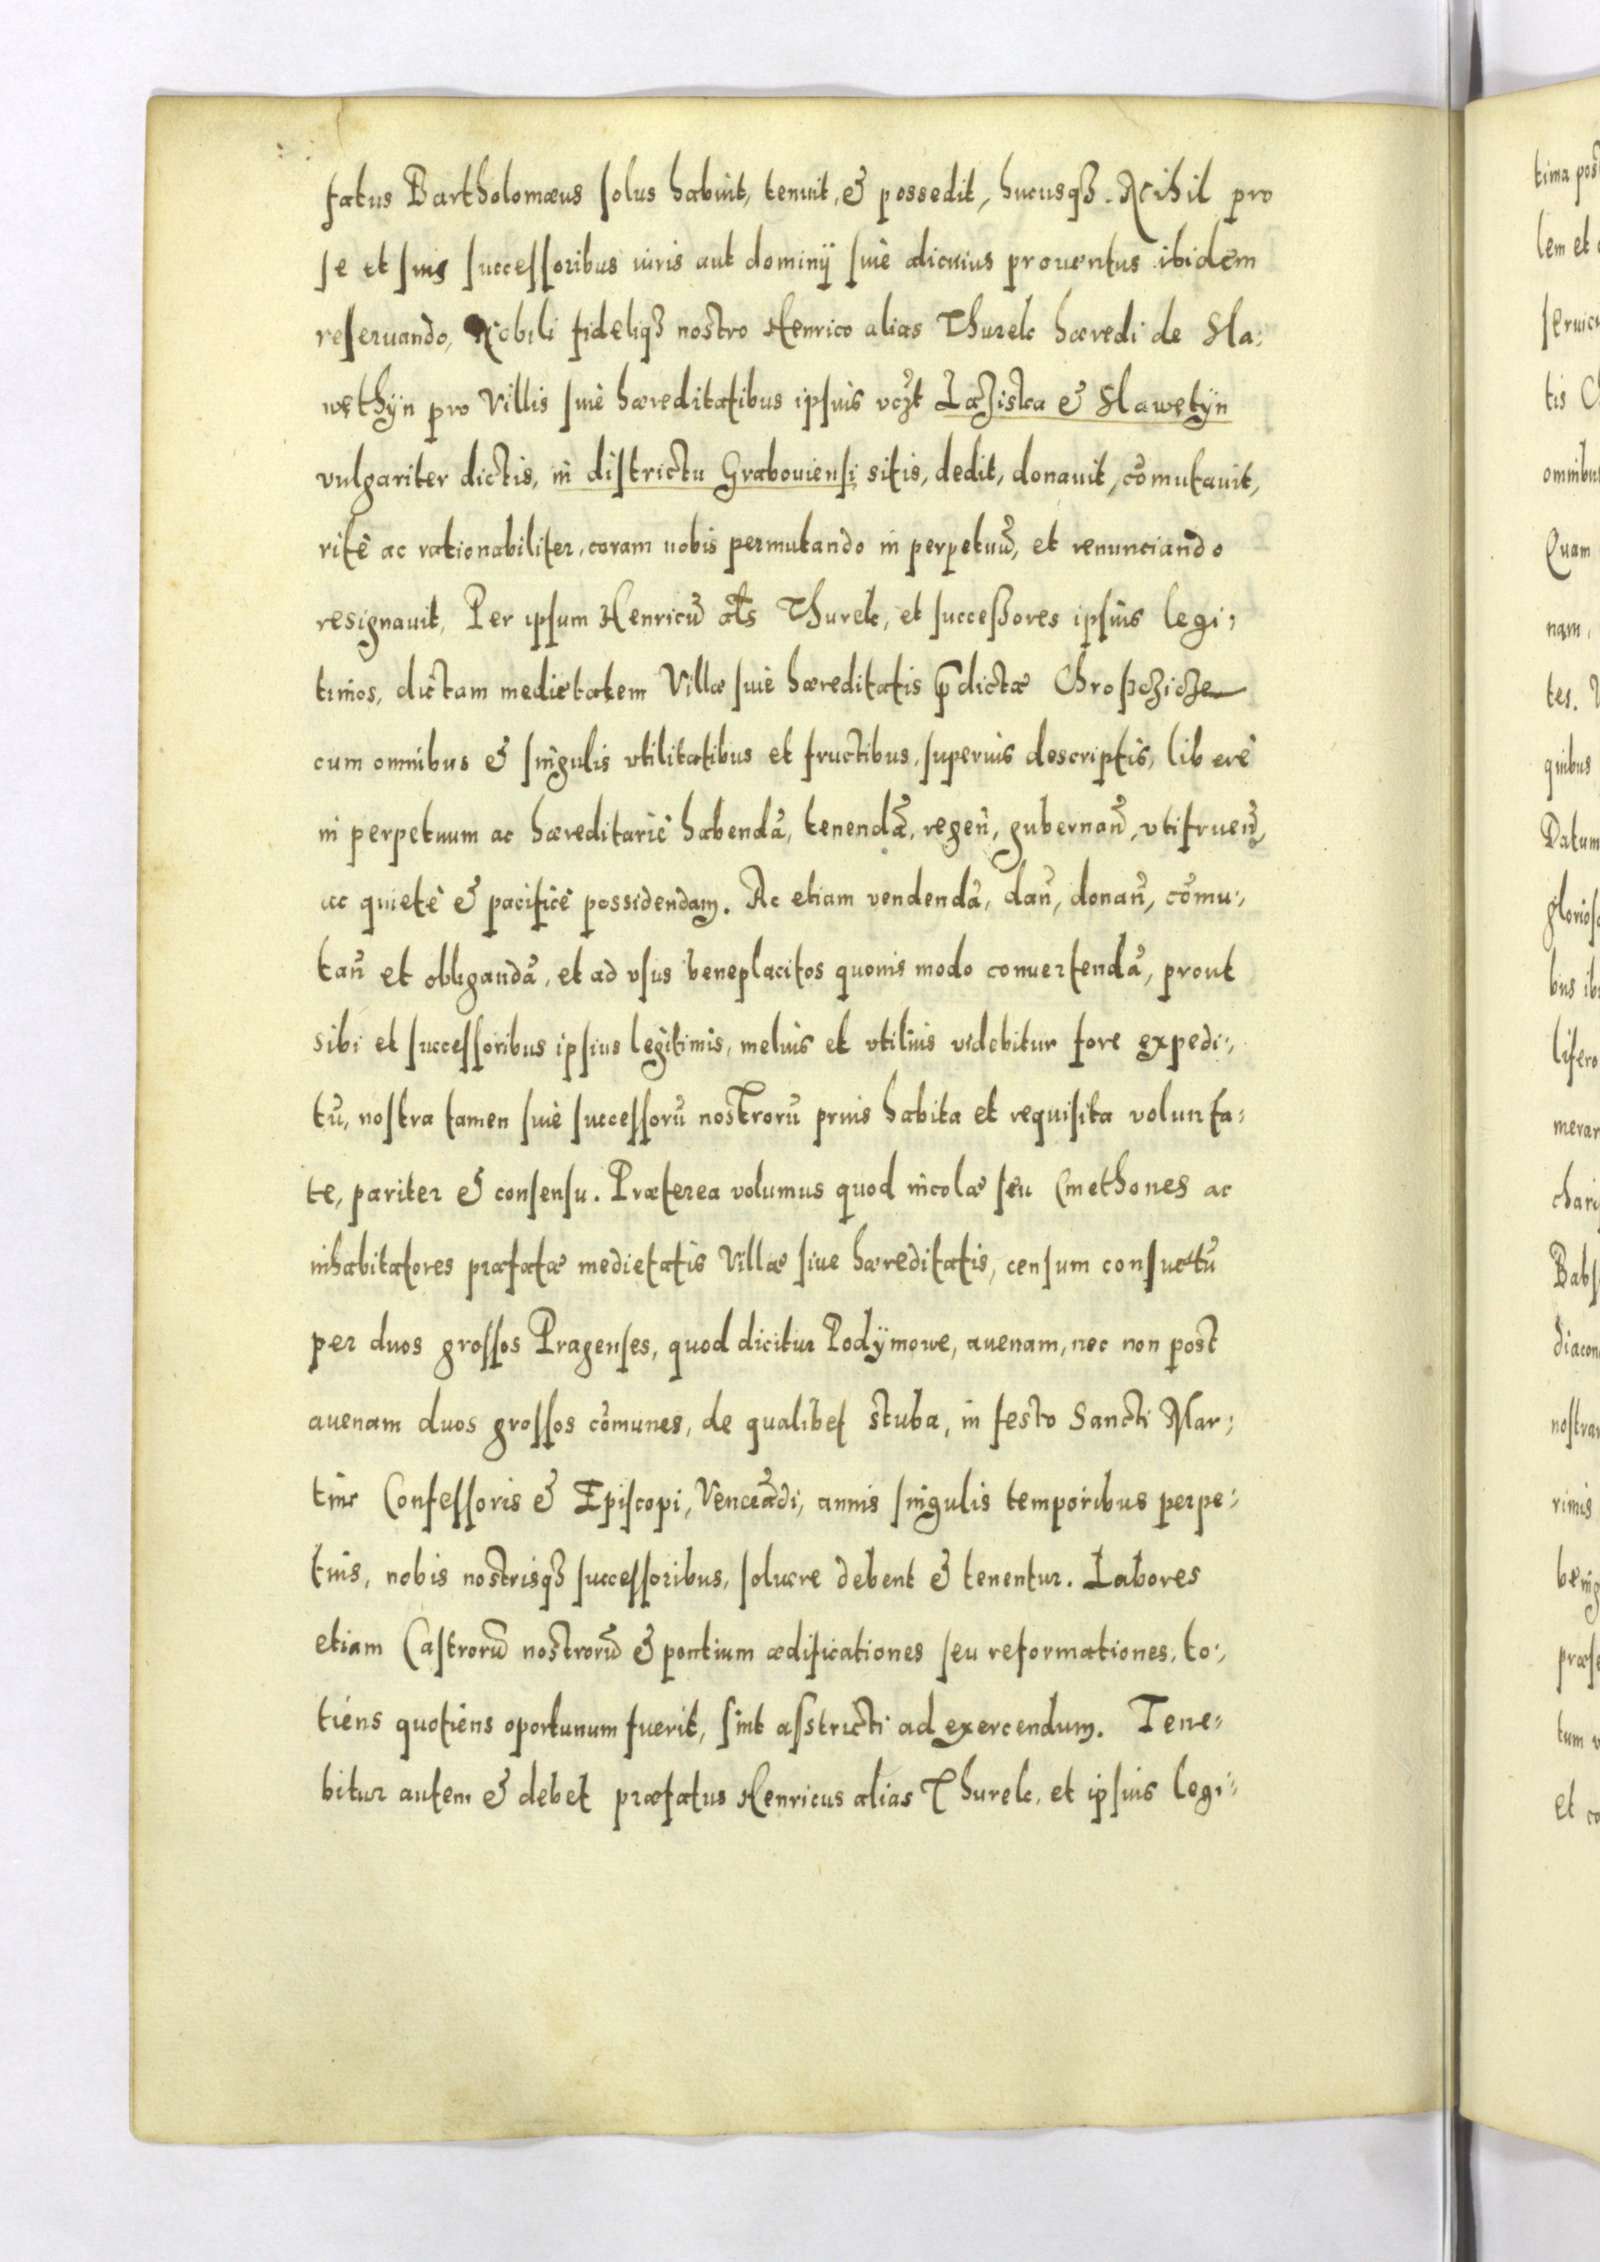 fatus Bartholomæus ſolus habuit, tenuit, & possedit, hucusqꝫ. Nihil pro
ſe et ſuis ſucceſſoribus iuris aut dominÿ ſiuè alicuius prouentus ibidem
reſeruando, Nobili fideliqꝫ nostro Henrico alias Thurek hæredi de Sla:
wethÿn pro Villis ſiuè hæreditatibus ipſius vcꝫt Laziska & Slawetÿn
vulgariter dictis, in diſtrictu Grabouienſi sitis, dedit, donauit, cōmutauit,
ritè ac rationabiliter, coram nobis permutando in perpetuū, et renunciando
resignauit, Per ipſum Henricū als Thurek, et ſucceßores ipſius legi:
timos, dictam medietatem Villæ ſiuè hæreditatis p̄dictæ Chroſzczicze
cum omnibus & ſingulis vtilitatibus et fructibus, ſuperius descriptis, liberè
in perpetuum ac hæreditariè habendā, tenendā, regen̄, gubernan̄, vtifruen̄,
ac quietè & pacificè possidendam. Ac etiam vendendā, dan̄, donan̄, cōmu:
tan̄ et obligandā, et ad vſus beneplacitos quouis modo conuertendā, prout
sibi et ſucceſſoribus ipſius legitimis, melius et vtilius videbitur fore expedi:
tū, noſtra tamen ſiuè ſucceſſorū nostrorū prius habita et requiſita volunta:
te, pariter & conſenſu. Præterea volumus quod incolæ ſeu Cmethones ac
inhabitatores præfatæ medietatis Villæ ſiue hæreditatis, cenſum conſuetū
per duos groſſos Pragenſes, quod dicitur Podÿmowe, auenam, nec non post
auenam duos groſſos cōmunes, de qualibet stuba, in festo Sancti Mar:
tini Confeſſoris & Epiſcopi, Venerādi, annis ſingulis temporibus perpe:
tuis, nobis nostrisqꝫ ſucceſſoribus, ſoluere debent & tenentur. Labores
etiam Caſtrorū nostrorū & pontium ædificationes ſeu reformationes, to:
tiens quotiens oportunum fuerit, ſint aſstricti ad exercendum. Tene:
bitur autem & debet præfatus Henricus alias Thurek, et ipſius legi: